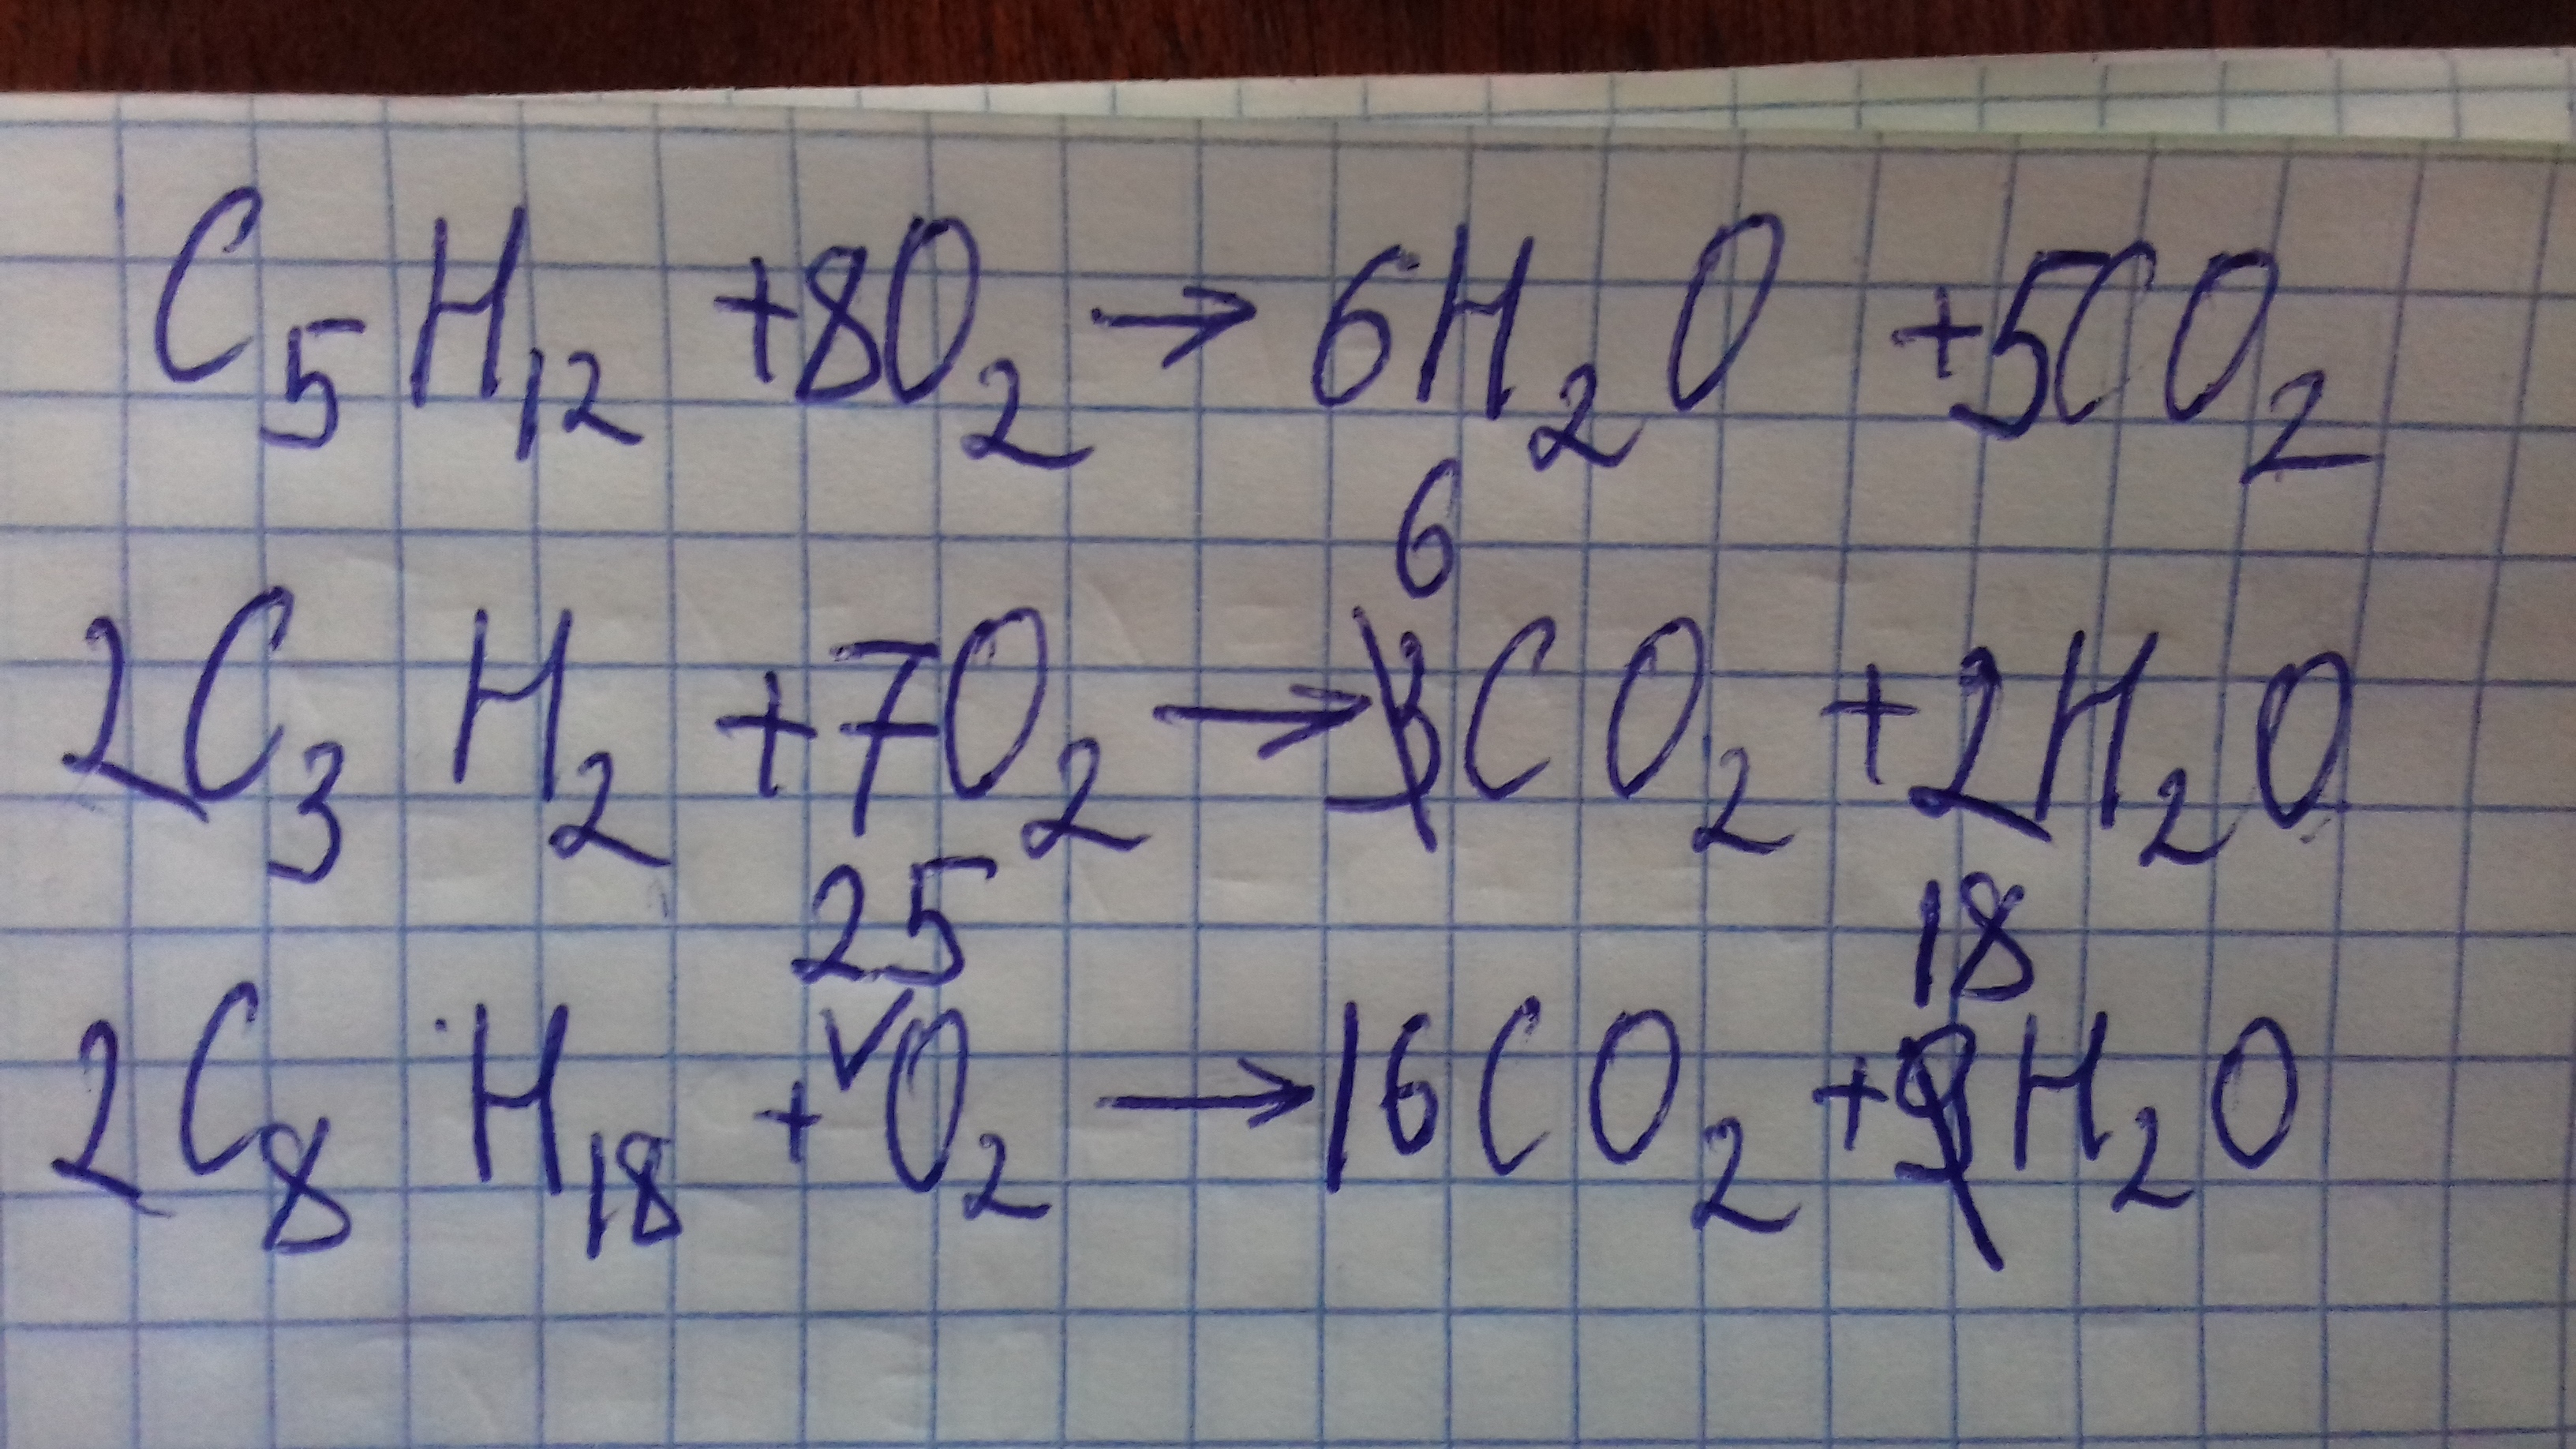 C₅H₁₂ + 8O₂ → 6H₂O + 5CO₂
6
2C₃H₂ + 7O₂ → 3CO₂ + 2H₂O
25 18
2C₈H₁₈ + ✓O₂ → 16CO₂ + 9H₂O